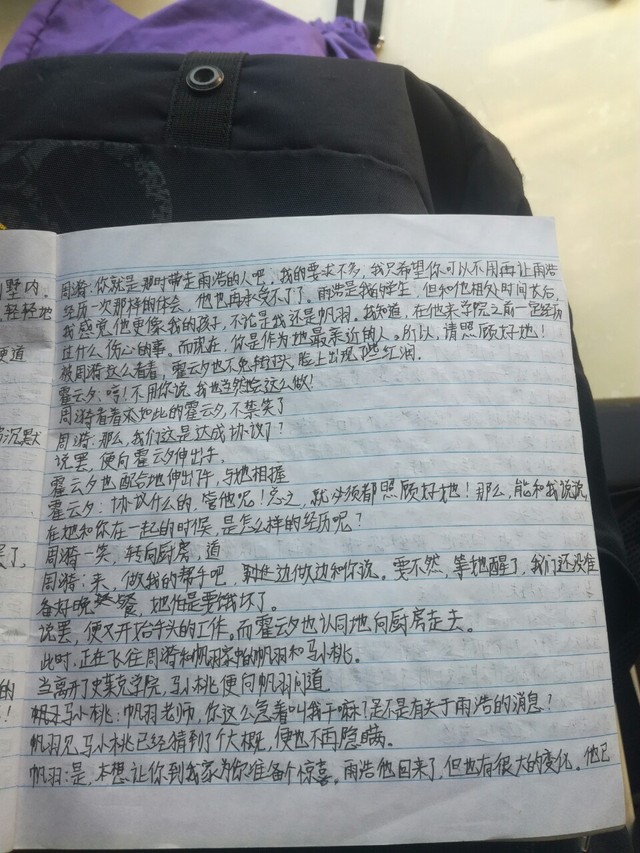 墅内。
轻轻地
沉默
的
周漪：你就是那时带走雨浩的人吧，我的要求不多，我只希望你可以不用再让雨浩
经历一次那样的体会，他也再承受不了了。雨浩是我的学生，但和他相处时间太久，
我感觉他更像我的孩子，不论是我还是帆羽。我知道，在他来学院之前一定经历
过什么伤心的事。而现在，你是作为她最亲近的人。所以，请照顾好她！
被周漪这么看着，霍云夕也不免转过头，脸上出现一丝红润。
霍云夕：哼！不用你说，我也当然会这么做！
周漪看着本如此的霍云夕，不禁笑了
周漪：那么，我们这是达成协议了？
说罢，便向霍云夕伸出手，
霍云夕也配合地伸出了手，与她相握
霍云夕：协议什么的，管他呢！总之，就必须都照顾好她！那么，能和我说说，
在她和你在一起的时候，是怎么样的经历呢？
周漪一笑，转向厨房，道
周漪：来，做我的帮手吧，到时边做边和你说。要不然，等她醒了，我们还没准
备好晚餐，她怕是要饿坏了。
说罢，便又开始手头的工作。而霍云夕也认同地向厨房走去。
此时，正在飞往周漪和帆羽家中的帆羽和马小桃。
当离开了史莱克学院，马小桃便向帆羽问道
马小桃：帆羽老师，你这么急着叫我干嘛？是不是有关于雨浩的消息？
帆羽见马小桃已经猜到了个大概，便也不再隐瞒。
帆羽：是，本想让你到我家为你准备个惊喜。雨浩他回来了，但也有很大的变化。他已